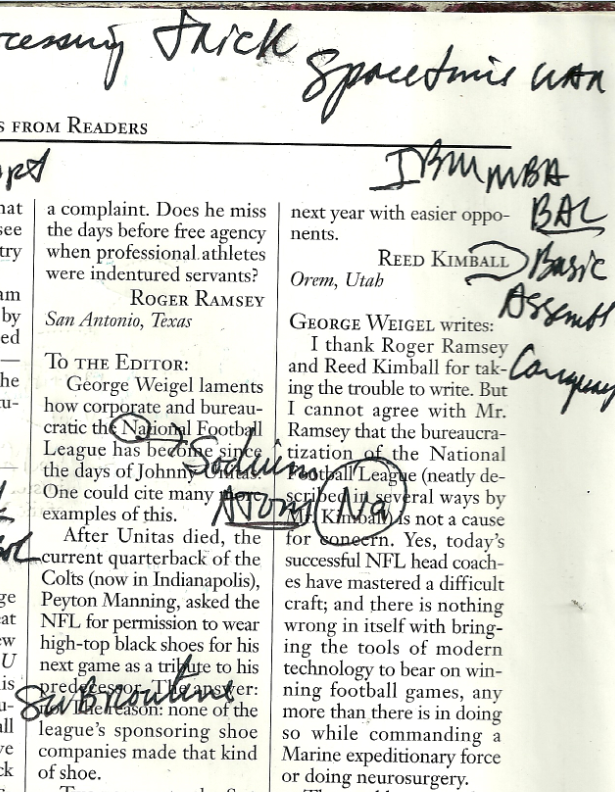 cessing trick
Spacetime WAR
S FROM READERS
IBM MBA
BAL
Basic
Assembl
Company
hat
see
try
am
by
ed
he
tu-
ge
at
ew
U
is
u-
all
ve
ck
a complaint. Does he miss
the days before free agency
when professional athletes
were indentured servants?
ROGER RAMSEY
San Antonio, Texas
TO THE EDITOR:
George Weigel laments
how corporate and bureau-
cratic the National Football
League has become since
the days of Johnny Unitas.
One could cite many more
examples of this.
After Unitas died, the
current quarterback of the
Colts (now in Indianapolis),
Peyton Manning, asked the
NFL for permission to wear
high-top black shoes for his
next game as a tribute to his
predecessor. The answer:
no. The reason: none of the
league's sponsoring shoe
companies made that kind
of shoe.
Sodium
Atom Na
Subroutine
next year with easier oppo-
nents.
REED KIMBALL
Orem, Utah
GEORGE WEIGEL writes:
I thank Roger Ramsey
and Reed Kimball for tak-
ing the trouble to write. But
I cannot agree with Mr.
Ramsey that the bureaucra-
tization of the National
Football League (neatly de-
scribed in several ways by
Mr. Kimball) is not a cause
for concern. Yes, today's
successful NFL head coach-
es have mastered a difficult
craft; and there is nothing
wrong in itself with bring-
ing the tools of modern
technology to bear on win-
ning football games, any
more than there is in doing
so while commanding a
Marine expeditionary force
or doing neurosurgery.